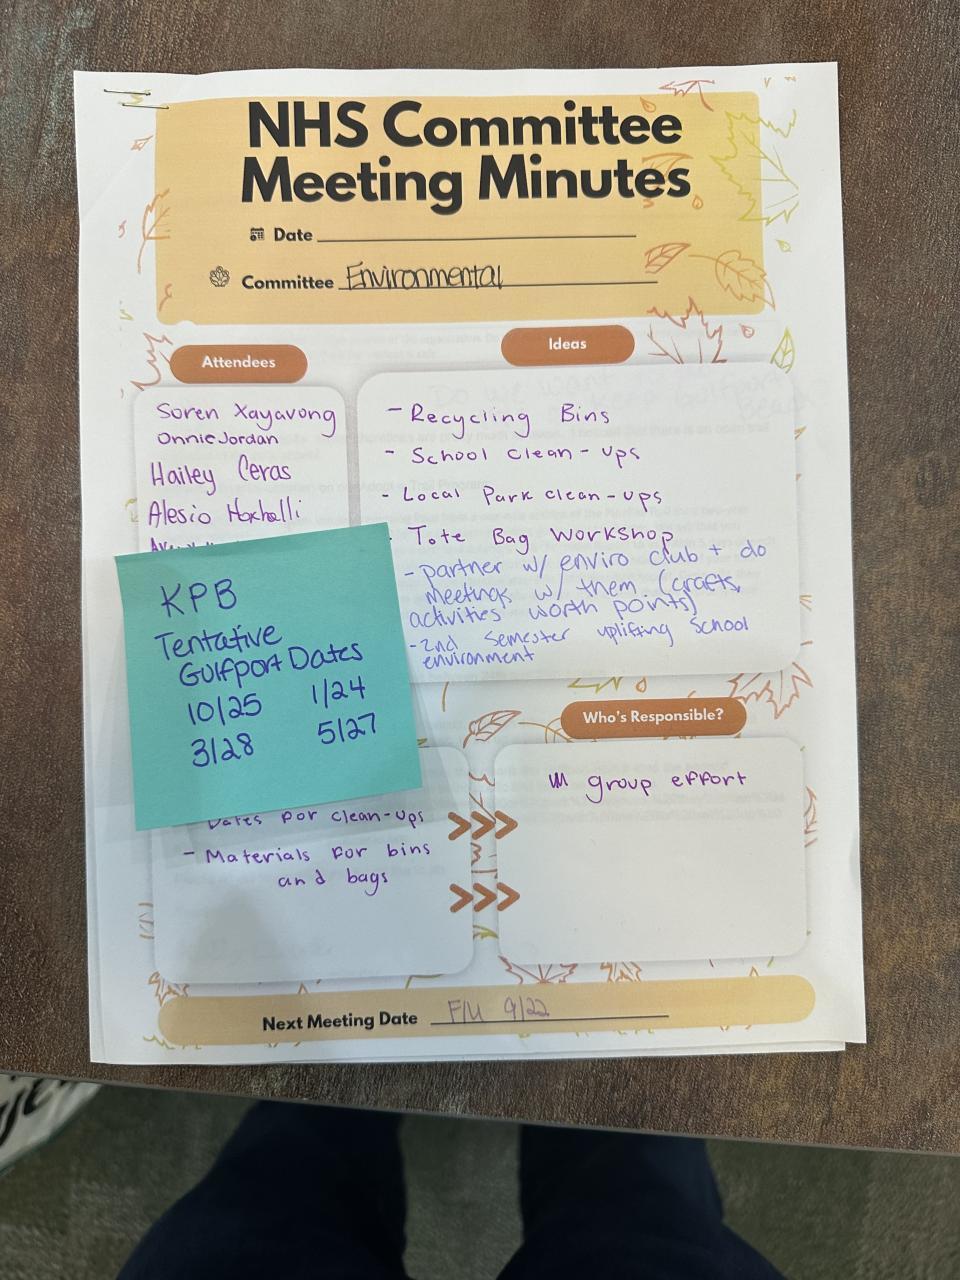 NHS Committee
Meeting Minutes
Date
Committee Environmental
Attendees
Soren Xayavong
Onnie Jordan
Hailey Ceras
Alesio Hoxhalli
Ideas
- Recycling Bins
- School clean-ups
- Local Park clean-ups
- Tote Bag Workshop
- partner w/ enviro club + do
meetings w/ them (crafts,
activities worth points)
- 2nd semester uplifting school
environment
KPB
Tentative
Gulfport Dates
10/25 1/24
3/28 5/27
Dates for clean-ups
- Materials for bins
and bags
Who's Responsible?
group effort
Next Meeting Date F/U 9/22